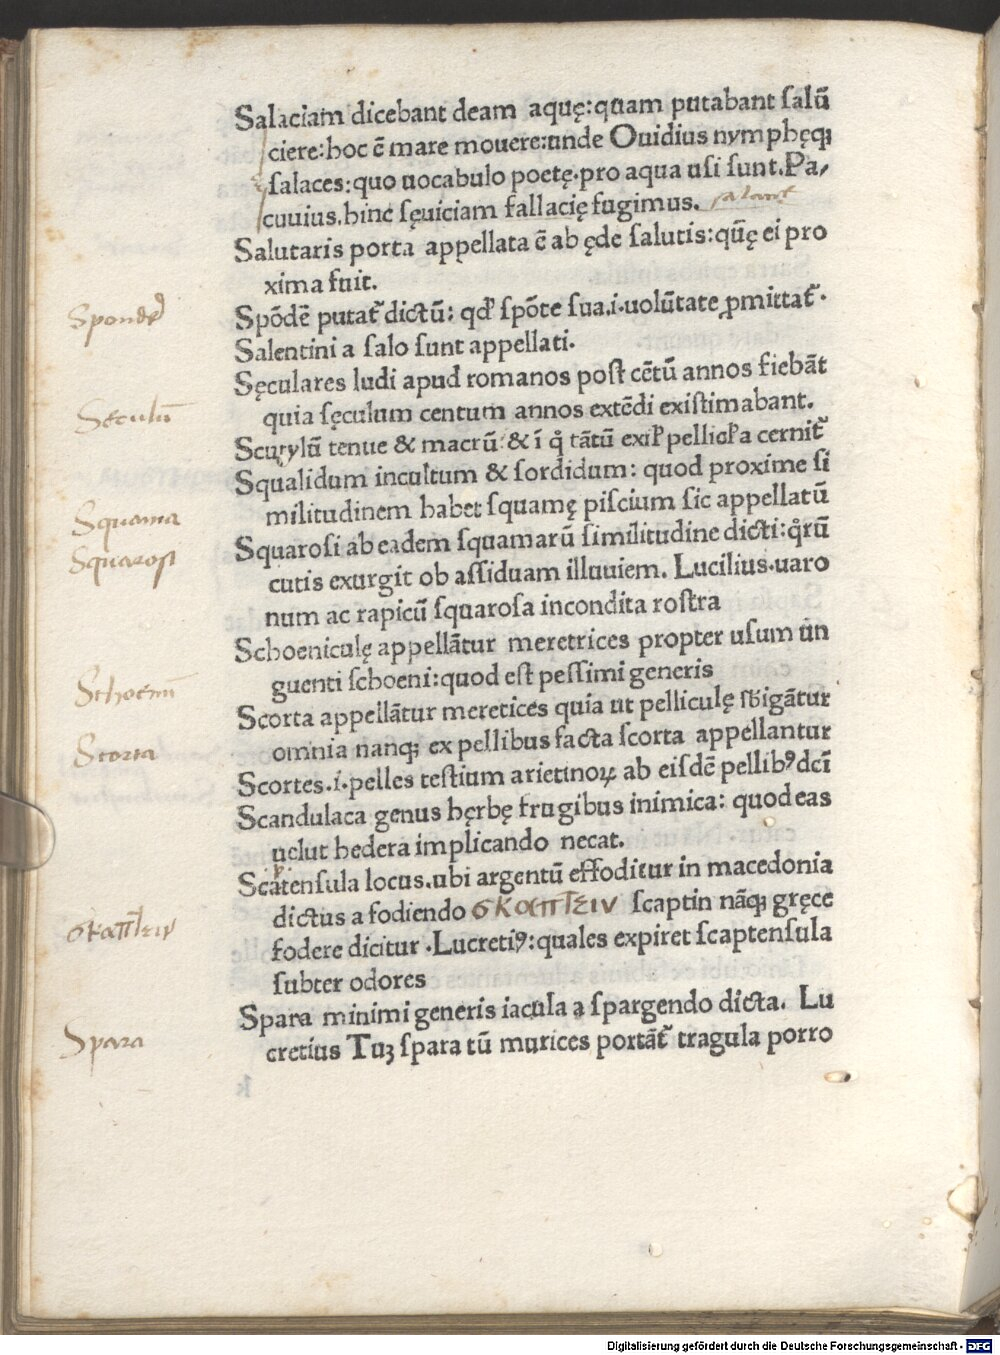 Salaciam dicebant deam aquę:quam putabant salū
ciere:hoc ē mare mouere:unde Ouidius nymphęq;
salaces:quo uocabulo poetę.pro aqua usi sunt.Pa/
cuuius.hinc sęuiciam fallacię fugimus.
Salutaris porta appellata ē ab ęde salutis:qūę ei pro
xima fuit.
Sponde
Spōdē putat᷑ dictū: qd' spōte sua.i.uolūtate ꝓmittat᷑.
Salentini a salo sunt appellati.
Sęculares ludi apud romanos post cētū annos fiebāt
Seculū
quia sęculum centum annos extēdi existimabant.
Scutylū tenue & macrū:& ī q̊ tātū exil' pellicl'a cernit᷑
Squalidum incultum & sordidum: quod proxime si
Squama
militudinem habet squamę piscium sic appellatū
Squarosi
Squarosi ab eadem squamarū similitudine dicti:q̊rū
cutis exurgit ob assiduam illuuiem. Lucilius.uaro
num ac rapicū squarosa incondita rostra
Schoeniculę appellātur meretrices propter usum un
Schoenū
guenti schoeni:quod est pessimi generis
Scorta appellātur meretices quia ut pelliculę sb̄igātur
Scorta
omnia nanq; ex pellibus facta scorta appellantur
Scortes.i.pelles testium arietinoꝝ ab eisdē pellibꝰ dc̄i
Scandulaca genus hęrbę frugibus inimica: quod eas
uelut hedera implicando necat.
Scatensula locus.ubi argentū effoditur in macedonia
σκαπτειν
dictus a fodiendo σκαπτειν scaptin nāq; gręce
fodere dicitur .Lucretiꝰ:quales expiret scaptensula
subter odores
Spara minimi generis iacula a spargendo dicta. Lu
Spara
cretius Tuȝ spara tū murices portāt᷑ tragula porro
k
Digitalisierung gefördert durch die Deutsche Forschungsgemeinschaft - DFG